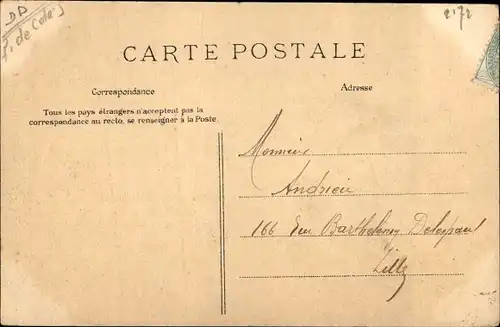 DD
2172
CARTE POSTALE
Correspondance
Adresse
Tous les pays étrangers n'acceptent pas la
correspondance au recto, se renseigner à la Poste.
Monsieur
Andrieu
166 Rue Barthelemy Delespaul
Lille